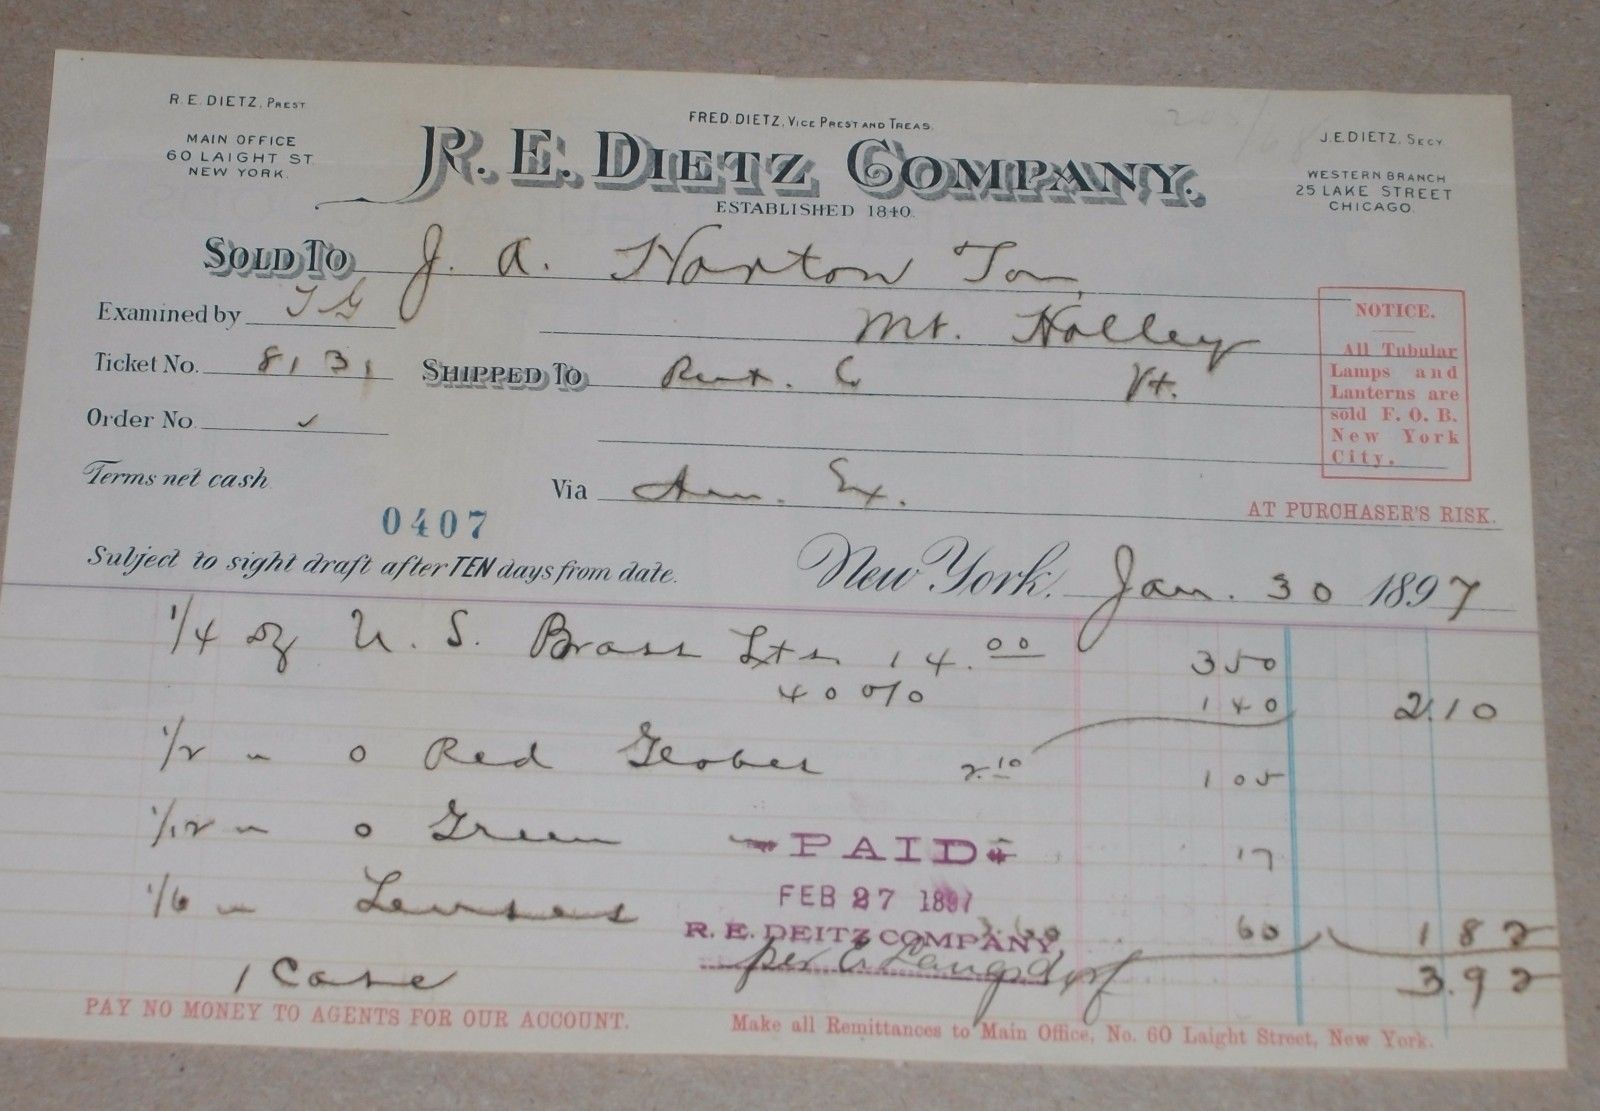 R. E. DIETZ, PREST
MAIN OFFICE
60 LAIGHT ST
NEW YORK.
FRED. DIETZ, VICE PREST AND TREAS.
R. E. DIETZ COMPANY.
ESTABLISHED 1840.
J. E. DIETZ, SECY.
WESTERN BRANCH
25 LAKE STREET
CHICAGO.
SOLD TO J. A. Horton
Mt. Holley
Examined by
Ticket No. 8131
SHIPPED TO Rut. Co Vt.
Order No.
Terms net cash
Via Am. Ex.
NOTICE.
All Tubular
Lamps and
Lanterns are
sold F. O. B.
New York
City.
AT PURCHASER'S RISK.
0407
Subject to sight draft after TEN days from date.
New York. Jan. 30 1897
1/4 dz U. S. Brass Ltns 14.00 350
40 % 140 2.10
1/2 " o Red Globes 2.10 105
1/12 " o Green 17
1/6 " Lenses 3.60 60 182
3.92
PAID
FEB 27 1897
R. E. DEITZ COMPANY,
per Langsdorf
1 Case
PAY NO MONEY TO AGENTS FOR OUR ACCOUNT.
Make all Remittances to Main Office, No. 60 Laight Street, New York.